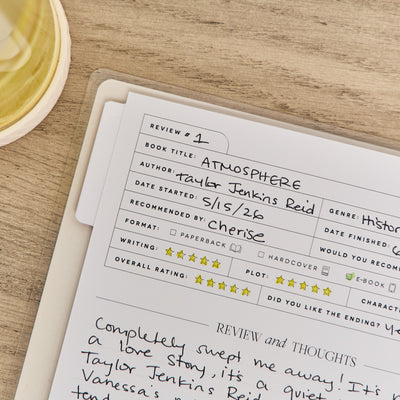 REVIEW # 1
BOOK TITLE: ATMOSPHERE
AUTHOR: Taylor Jenkins Reid
GENRE: Histor
DATE STARTED: 5/15/26
DATE FINISHED: 6
RECOMMENDED BY: Cherise
WOULD YOU RECOM
FORMAT: PAPERBACK HARDCOVER E-BOOK
WRITING: PLOT: CHARACT
OVERALL RATING: DID YOU LIKE THE ENDING? Ye
REVIEW and THOUGHTS
Completely swept me away! It's
a love story, it's a quiet
Taylor Jenkins Reid
Vanessa's
tend